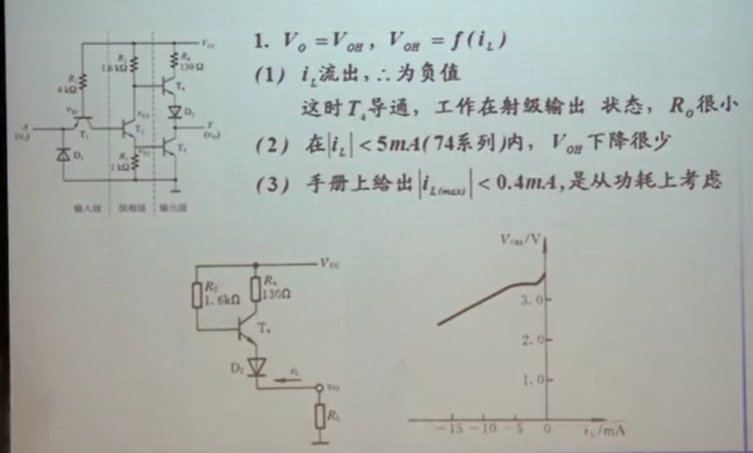 1. V_O = V_OH, V_OH = f(i_L)
(1) i_L流出,∴为负值
这时T_4导通,工作在射级输出 状态,R_O很小
(2) 在|i_L| < 5mA(74系列)内,V_OH下降很少
(3) 手册上给出|i_L(max)| < 0.4mA,是从功耗上考虑
V_CC
R_4
130Ω
1.6kΩ
4kΩ
T_4
D_2
T_1
T_2
D_1
1kΩ
输入级 倒相级 输出级
V_CC
R_2
1.6kΩ
R_4
130Ω
T_4
D_2
i_L
v_O
R_L
V_OH/V
3.0
2.0
1.0
-15 -10 -5 0 i_L/mA